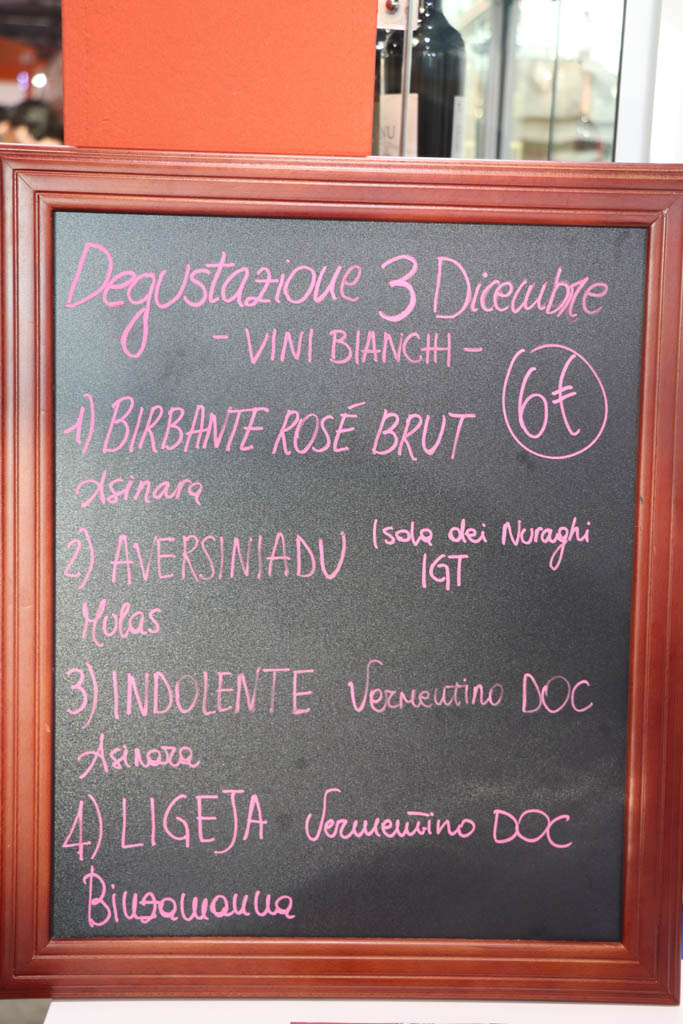 Degustazione 3 Dicembre
- VINI BIANCHI -
6€
1) BIRBANTE ROSÉ BRUT
Asinara
2) AVERSINIADU Isola dei Nuraghi
IGT
Molas
3) INDOLENTE Vermentino DOC
Asinara
4) LIGEJA Vermentino DOC
Binzamanna